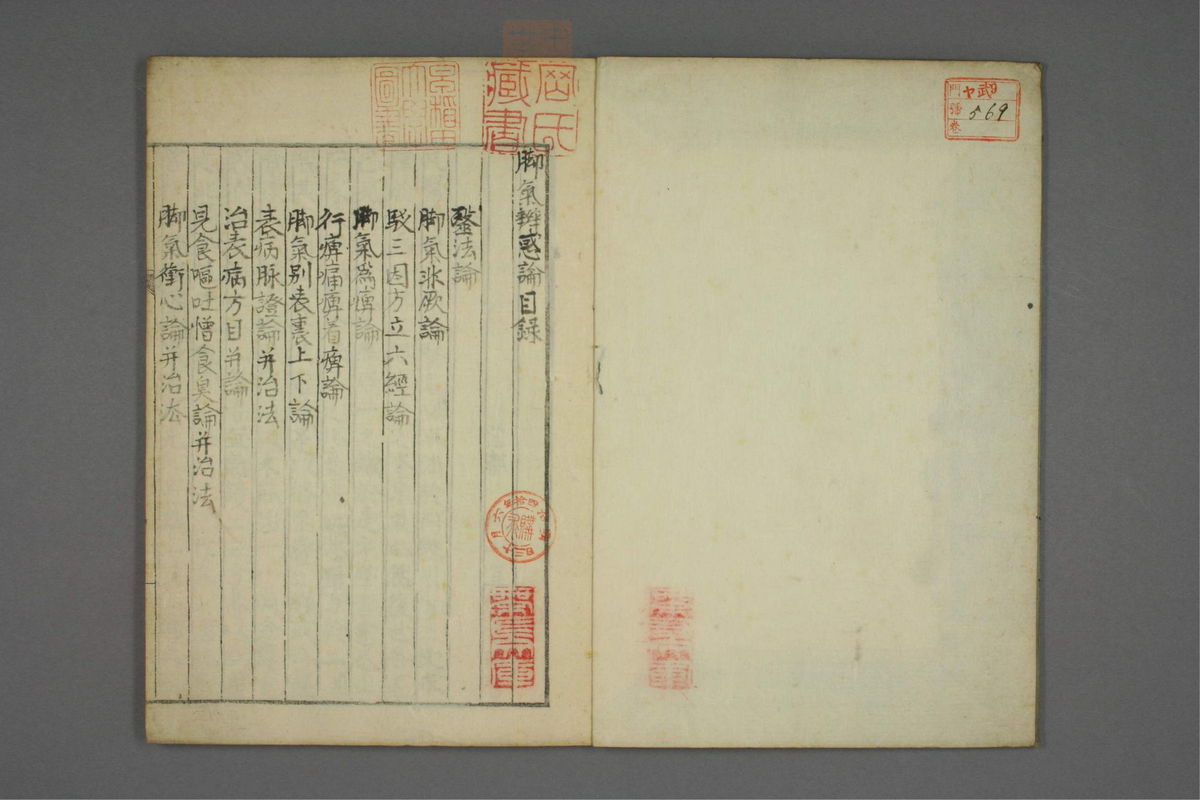 脚氣辨惑論目錄
毉法論
脚氣非厥論
駁三因方立六經論
脚氣爲痺論
行痺痛痺着痺論
脚氣別表裏上下論
表病脉證論并治法
治表病方目并論
見食嘔吐憎食臭論并治法
脚氣衝心論并治法
569